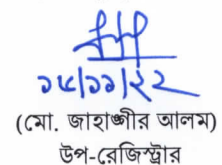 ১৫/১১/২২
(মো. জাহাঙ্গীর আলম)
উপ-রেজিস্ট্রার